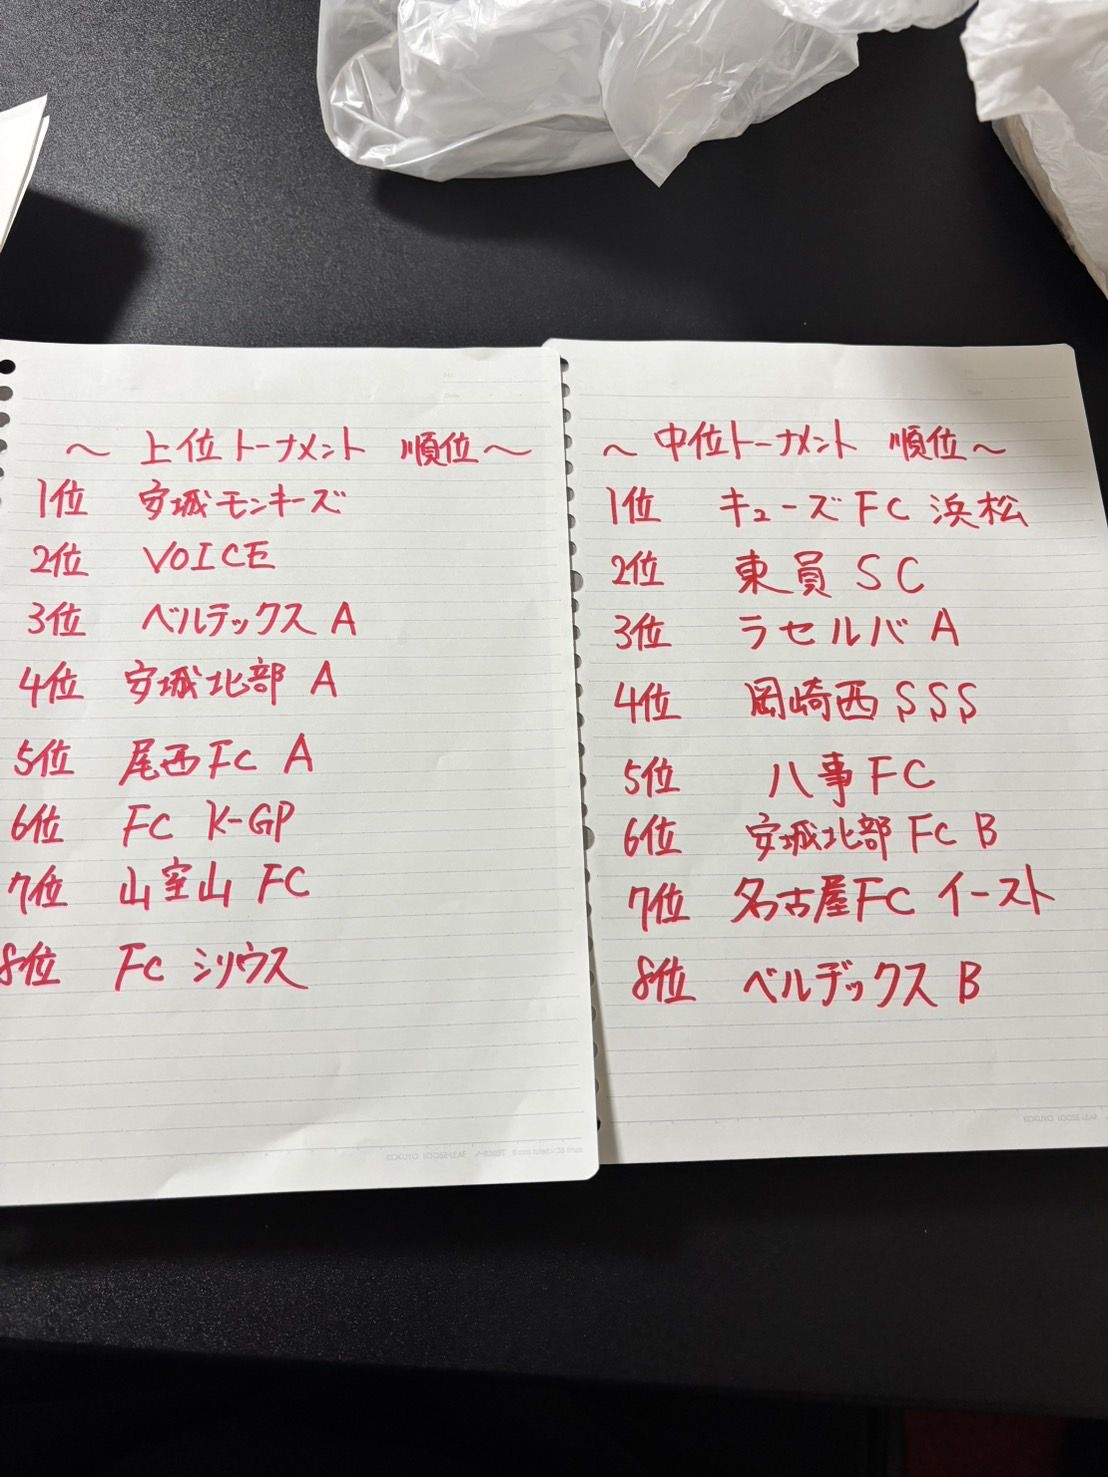 ～ 上位トーナメント 順位～
1位 安城モンキーズ
2位 VOICE
3位 ベルテックス A
4位 安城北部 A
5位 尾西FC A
6位 FC K-GP
7位 山室山 FC
8位 FC シリウス
～ 中位トーナメント 順位～
1位 キューズFC 浜松
2位 東員 SC
3位 ラセルバ A
4位 岡崎西 SSS
5位 八事FC
6位 安城北部 FC B
7位 名古屋FC イースト
8位 ベルデックス B